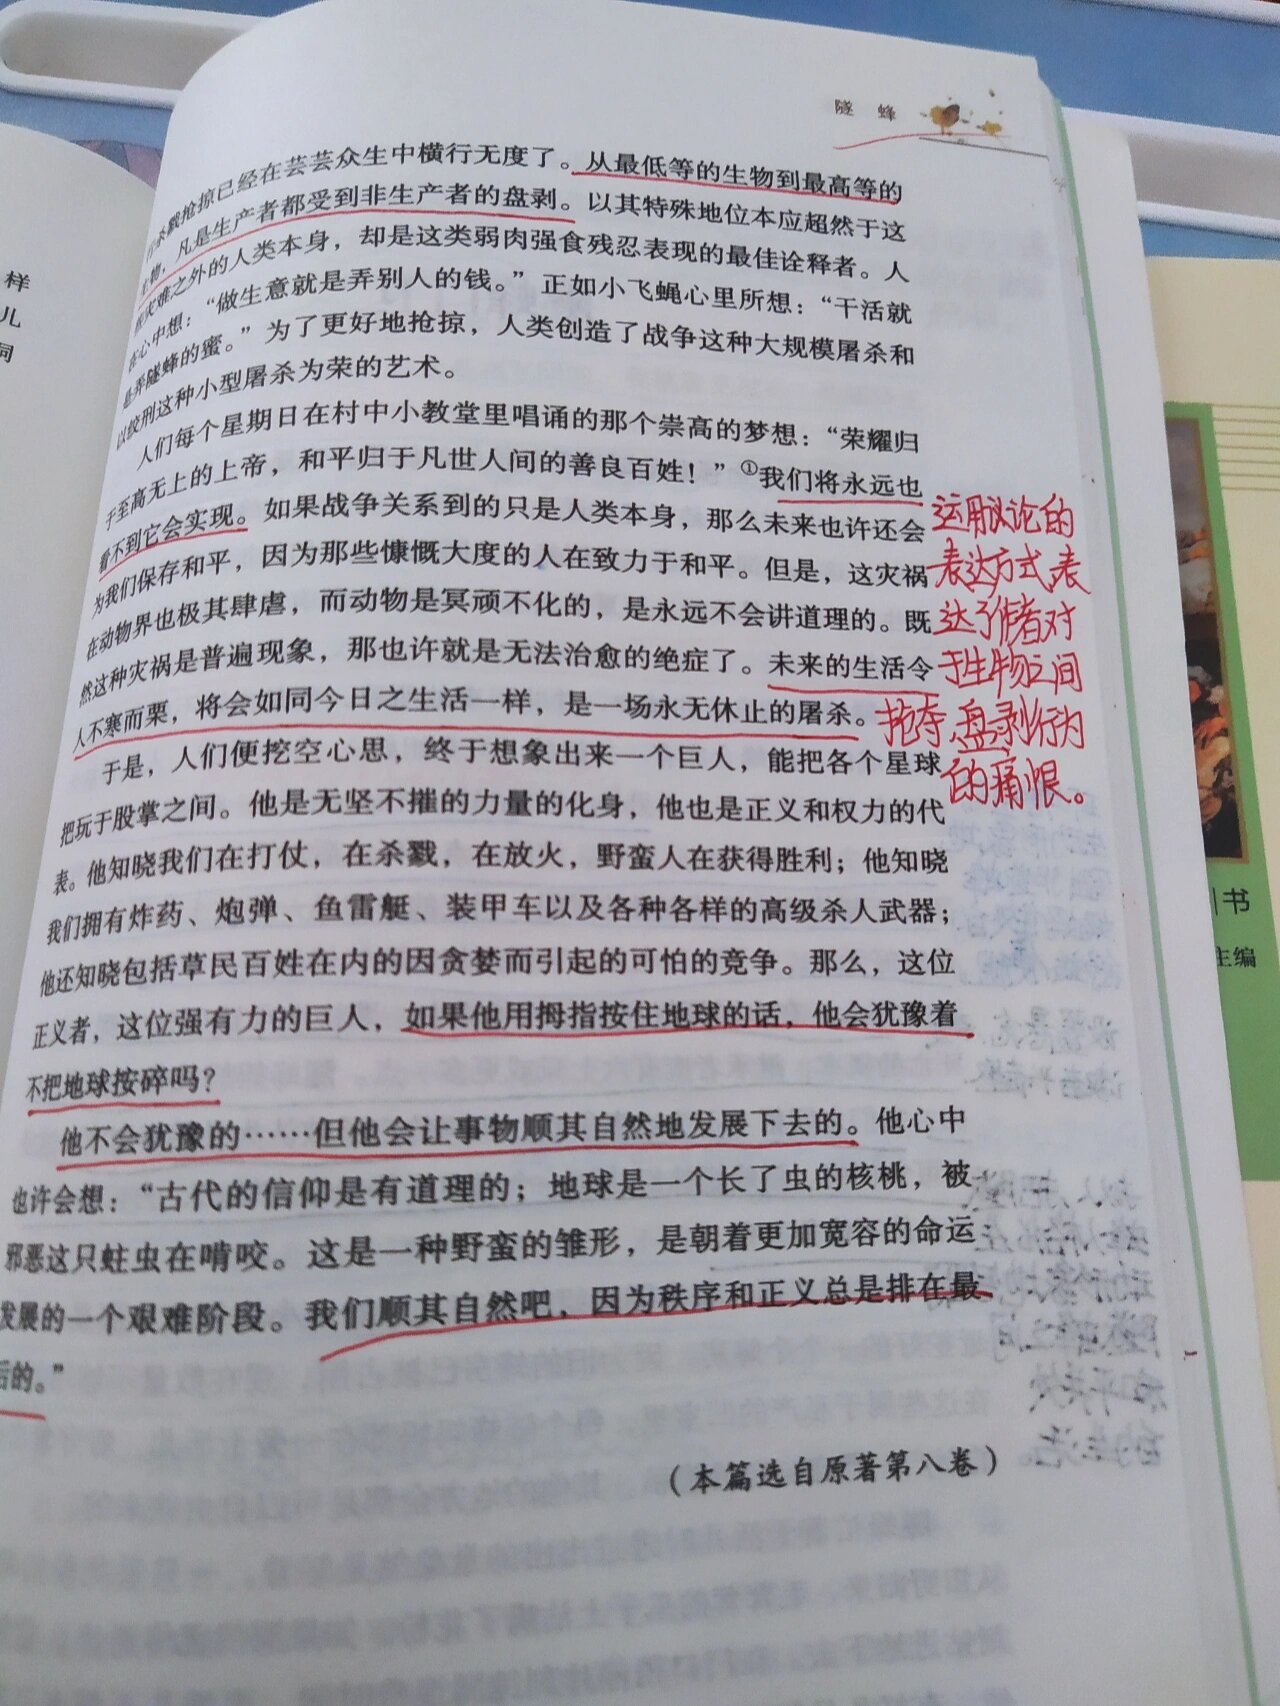 隧 蜂
抢掠已经在芸芸众生中横行无度了。从最低等的生物到最高等的
生物，凡是生产者都受到非生产者的盘剥。以其特殊地位本应超然于这
灾难之外的人类本身，却是这类弱肉强食残忍表现的最佳诠释者。人
在心中想：“做生意就是弄别人的钱。”正如小飞蝇心里所想：“干活就
是弄隧蜂的蜜。”为了更好地抢掠，人类创造了战争这种大规模屠杀和
以绞刑这种小型屠杀为荣的艺术。
人们每个星期日在村中小教堂里唱诵的那个崇高的梦想：“荣耀归
于至高无上的上帝，和平归于凡世人间的善良百姓！”①我们将永远也
看不到它会实现。如果战争关系到的只是人类本身，那么未来也许还会
为我们保存和平，因为那些慷慨大度的人在致力于和平。但是，这灾祸
在动物界也极其肆虐，而动物是冥顽不化的，是永远不会讲道理的。既
然这种灾祸是普遍现象，那也许就是无法治愈的绝症了。未来的生活令
人不寒而栗，将会如同今日之生活一样，是一场永无休止的屠杀。
于是，人们便挖空心思，终于想象出来一个巨人，能把各个星球
把玩于股掌之间。他是无坚不摧的力量的化身，他也是正义和权力的代
表。他知晓我们在打仗，在杀戮，在放火，野蛮人在获得胜利；他知晓
我们拥有炸药、炮弹、鱼雷艇、装甲车以及各种各样的高级杀人武器；
他还知晓包括草民百姓在内的因贪婪而引起的可怕的竞争。那么，这位
正义者，这位强有力的巨人，如果他用拇指按住地球的话，他会犹豫着
不把地球按碎吗？
他不会犹豫的……但他会让事物顺其自然地发展下去的。他心中
也许会想：“古代的信仰是有道理的；地球是一个长了虫的核桃，被
邪恶这只蛀虫在啃咬。这是一种野蛮的雏形，是朝着更加宽容的命运
发展的一个艰难阶段。我们顺其自然吧，因为秩序和正义总是排在最
后的。”
（本篇选自原著第八卷）
运用议论的
表达方式，表
达了作者对
于生物之间
掠夺、盘剥行为
的痛恨。
样
儿
词
书
主编